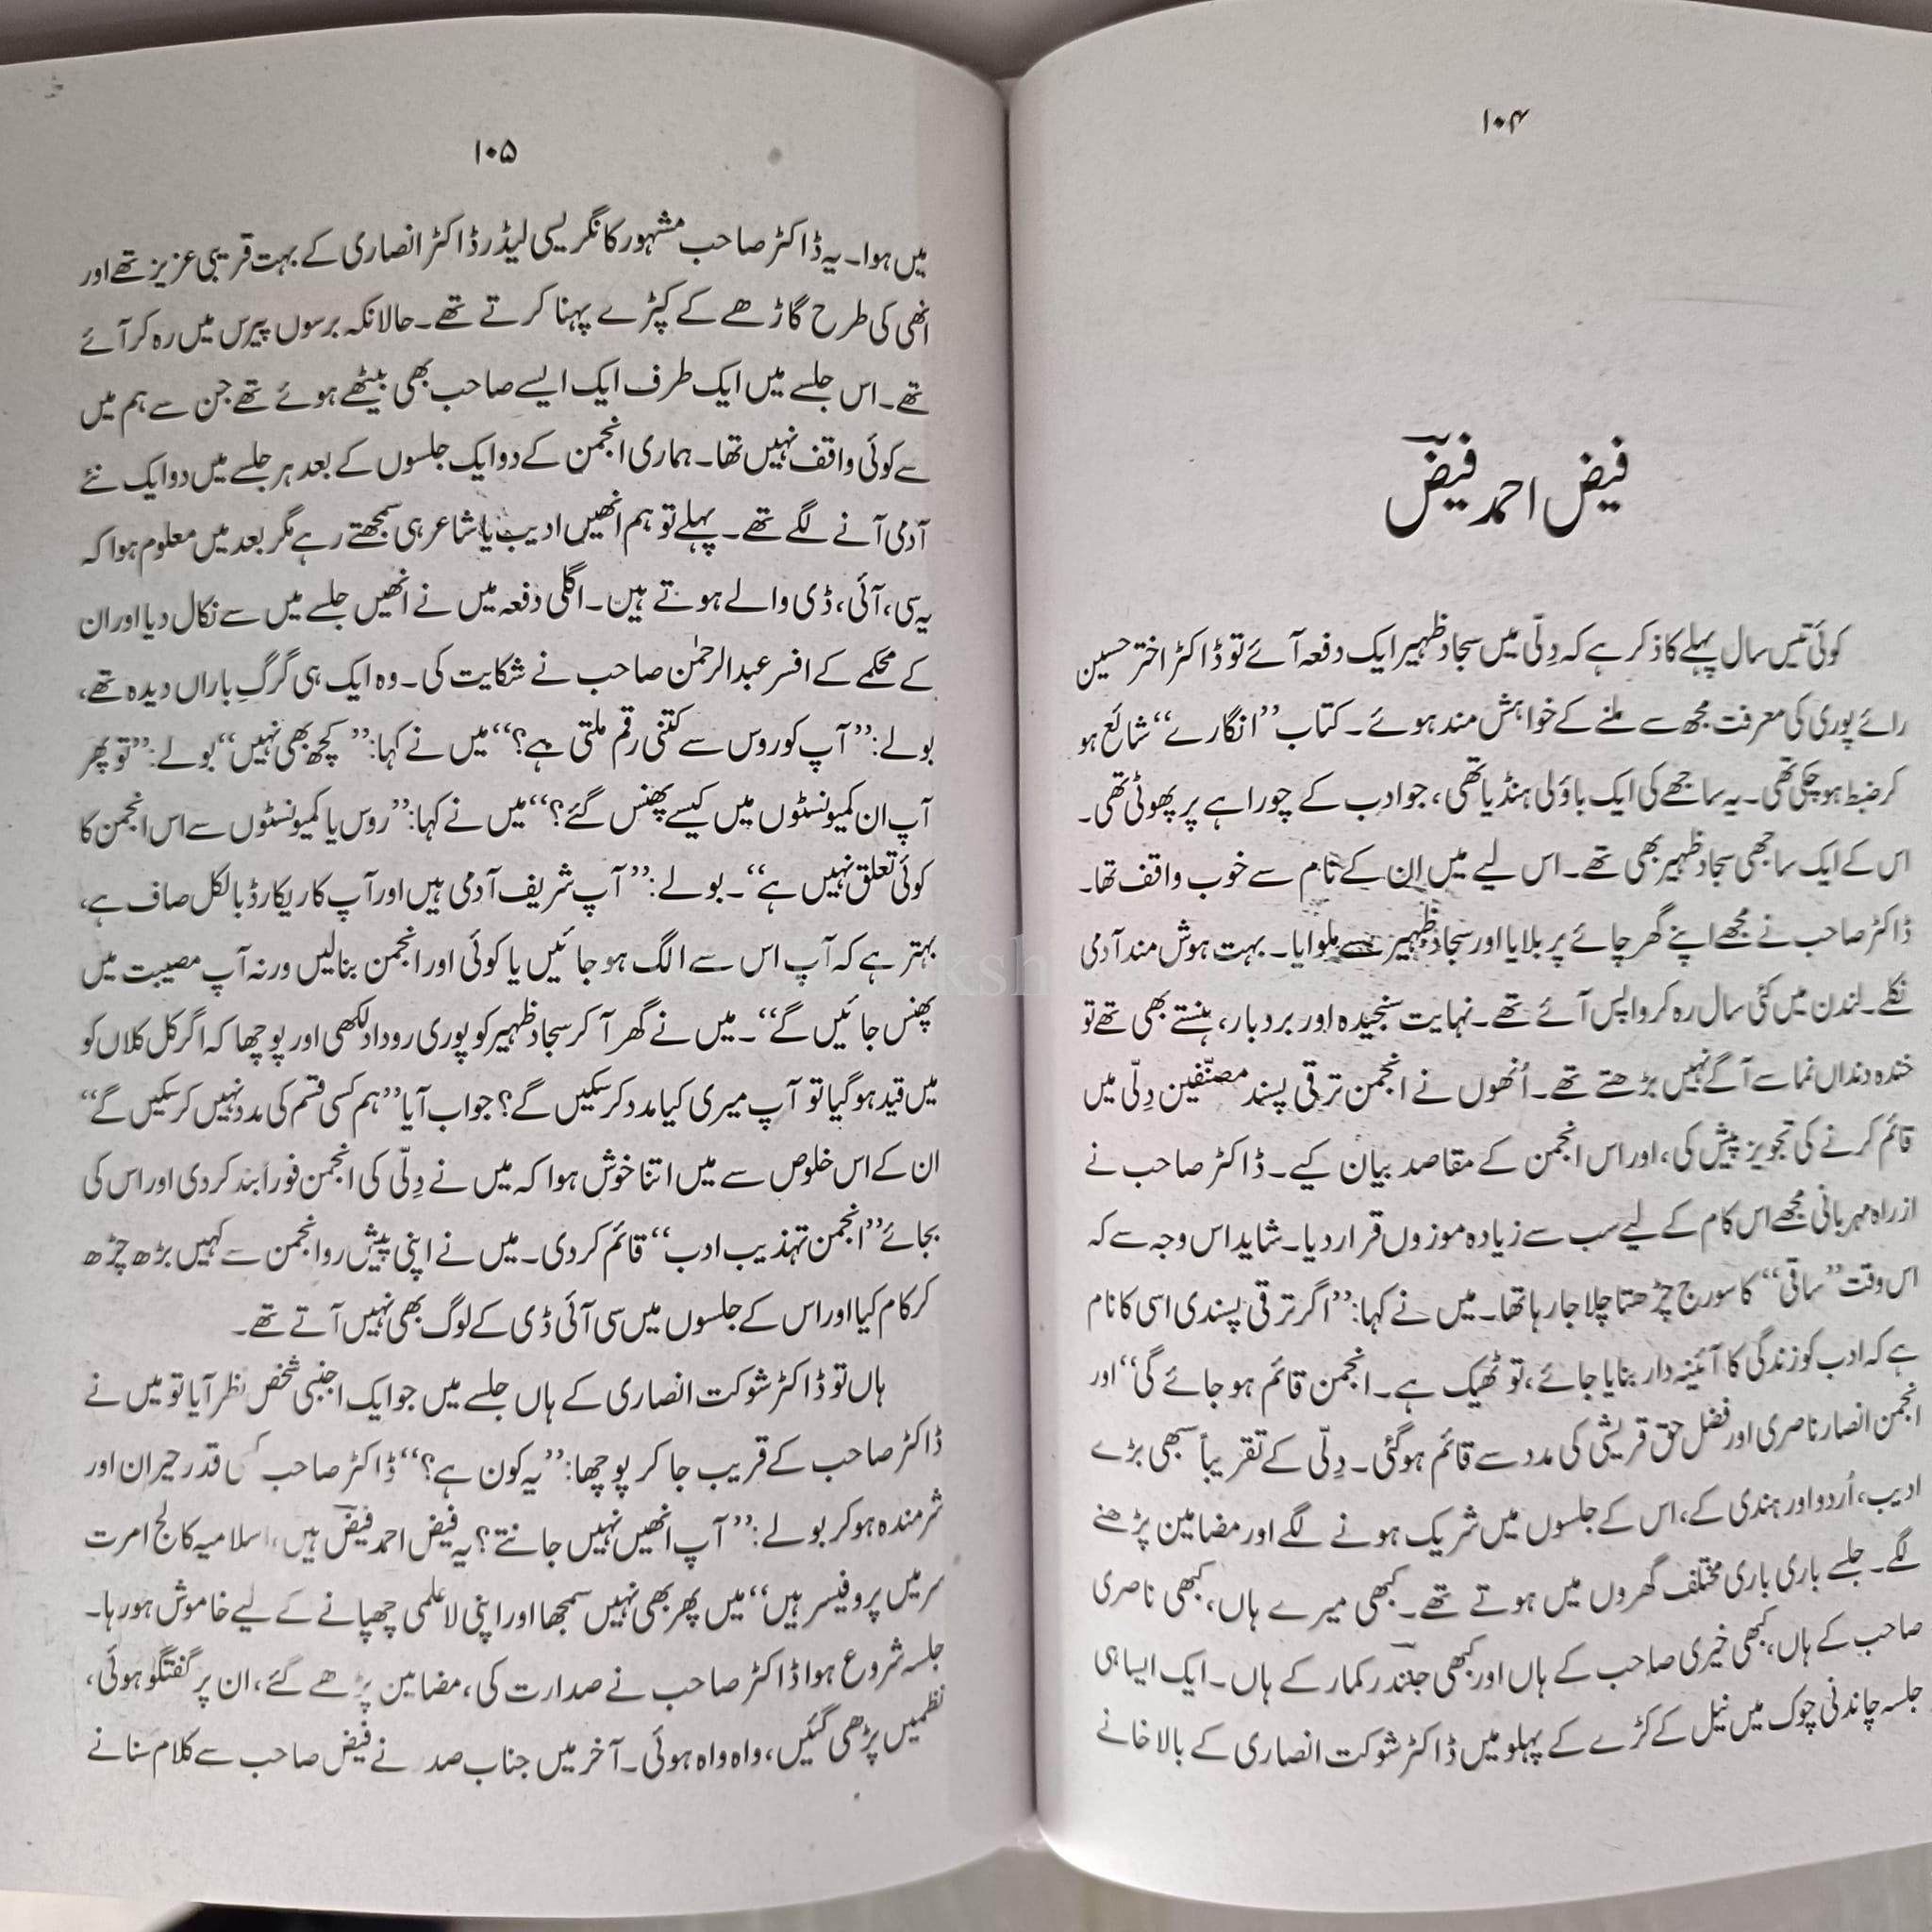 ۱۰۴
فیض احمد فیضؔ
کوئی تیس سال پہلے کا ذکر ہے کہ دِلّی میں سجاد ظہیر ایک دفعہ آئے تو ڈاکٹر اختر حسین
رائے پوری کی معرفت مجھ سے ملنے کے خواہش مند ہوئے۔ کتاب ”انگارے“ شائع ہو
کر ضبط ہو چکی تھی۔ یہ ساجھے کی ایک باؤلی ہنڈیا تھی، جو ادب کے چوراہے پر پھوٹی تھی۔
اس کے ایک ساجھی سجاد ظہیر بھی تھے۔ اس لیے میں ان کے نام سے خوب واقف تھا۔
ڈاکٹر صاحب نے مجھے اپنے گھر چائے پر بلایا اور سجاد ظہیر سے ملوایا۔ بہت ہوش مند آدمی
نکلے۔ لندن میں کئی سال رہ کر واپس آئے تھے۔ نہایت سنجیدہ اور بردبار، ہنستے بھی تھے تو
خندہ دنداں نما سے آگے نہیں بڑھتے تھے۔ اُنھوں نے انجمن ترقی پسند مصنّفین دِلّی میں
قائم کرنے کی تجویز پیش کی، اور اس انجمن کے مقاصد بیان کیے۔ ڈاکٹر صاحب نے
ازراہ مہربانی مجھے اس کام کے لیے سب سے زیادہ موزوں قرار دیا۔ شاید اس وجہ سے کہ
اس وقت ”ساقی“ کا سورج چڑھتا چلا جا رہا تھا۔ میں نے کہا: ”اگر ترقی پسندی اسی کا نام
ہے کہ ادب کو زندگی کا آئینہ دار بنایا جائے، تو ٹھیک ہے۔ انجمن قائم ہو جائے گی“ اور
انجمن انصار ناصری اور فضل حق قریشی کی مدد سے قائم ہوگئی۔ دِلّی کے تقریباً سبھی بڑے
ادیب، اُردو اور ہندی کے، اس کے جلسوں میں شریک ہونے لگے اور مضامین پڑھنے
لگے۔ جلسے باری باری مختلف گھروں میں ہوتے تھے۔ کبھی میرے ہاں، کبھی ناصری
صاحب کے ہاں، کبھی خیری صاحب کے ہاں اور کبھی جتندر کمار کے ہاں۔ ایک ایسا ہی
جلسہ چاندنی چوک میں نیل کے کڑے کے پہلو میں ڈاکٹر شوکت انصاری کے بالا خانے
۱۰۵
میں ہوا۔ یہ ڈاکٹر صاحب مشہور کانگریسی لیڈر ڈاکٹر انصاری کے بہت قریبی عزیز تھے اور
انھی کی طرح گاڑھے کے کپڑے پہنا کرتے تھے۔ حالانکہ برسوں پیرس میں رہ کر آئے
تھے۔ اس جلسے میں ایک طرف ایک ایسے صاحب بھی بیٹھے ہوئے تھے جن سے ہم میں
سے کوئی واقف نہیں تھا۔ ہماری انجمن کے دو ایک جلسوں کے بعد ہر جلسے میں دو ایک نئے
آدمی آنے لگے تھے۔ پہلے تو ہم انھیں ادیب یا شاعر ہی سمجھتے رہے مگر بعد میں معلوم ہوا کہ
یہ سی، آئی، ڈی والے ہوتے ہین۔ اگلی دفعہ میں نے انھیں جلسے میں سے نکال دیا اور ان
کے محکمے کے افسر عبدالرحمٰن صاحب نے شکایت کی۔ وہ ایک ہی گرگِ باراں دیدہ تھے،
بولے: ”آپ کو روس سے کتنی رقم ملتی ہے؟“ میں نے کہا: ”کچھ بھی نہیں“ بولے: ”تو پھر
آپ ان کمیونسٹوں میں کیسے پھنس گئے؟“ میں نے کہا: ”روس یا کمیونسٹوں سے اس انجمن کا
کوئی تعلق نہیں ہے“۔ بولے: ”آپ شریف آدمی ہیں اور آپ کا ریکارڈ بالکل صاف ہے،
بہتر ہے کہ آپ اس سے الگ ہو جائیں یا کوئی اور انجمن بنالیں ورنہ آپ مصیبت میں
پھنس جائیں گے“۔ میں نے گھر آ کر سجاد ظہیر کو پوری روداد لکھی اور پوچھا کہ اگر کل کلاں کو
میں قید ہوگیا تو آپ میری کیا مدد کرسکیں گے؟ جواب آیا ”ہم کسی قسم کی مدد نہیں کرسکیں گے“
ان کے اس خلوص سے میں اتنا خوش ہوا کہ میں نے دِلّی کی انجمن فوراً بند کردی اور اس کی
بجائے ”انجمن تہذیب ادب“ قائم کردی۔ میں نے اپنی پیش رو انجمن سے کہیں بڑھ چڑھ
کر کام کیا اور اس کے جلسوں میں سی آئی ڈی کے لوگ بھی نہیں آتے تھے۔
ہاں تو ڈاکٹر شوکت انصاری کے ہاں جلسے میں جو ایک اجنبی شخص نظر آیا تو میں نے
ڈاکٹر صاحب کے قریب جا کر پوچھا: ”یہ کون ہے؟“ ڈاکٹر صاحب کسی قدر حیران اور
شرمندہ ہو کر بولے: ”آپ انھیں نہیں جانتے؟ یہ فیض احمد فیضؔ ہیں، اسلامیہ کالج امرت
سر میں پروفیسر ہیں“ میں پھر بھی نہیں سمجھا اور اپنی لاعلمی چھپانے کے لیے خاموش ہو رہا۔
جلسہ شروع ہوا ڈاکٹر صاحب نے صدارت کی، مضامین پڑھے گئے، ان پر گفتگو ہوئی،
نظمیں پڑھی گئیں، واہ واہ ہوئی۔ آخر میں جناب صدر نے فیض صاحب سے کلام سنانے